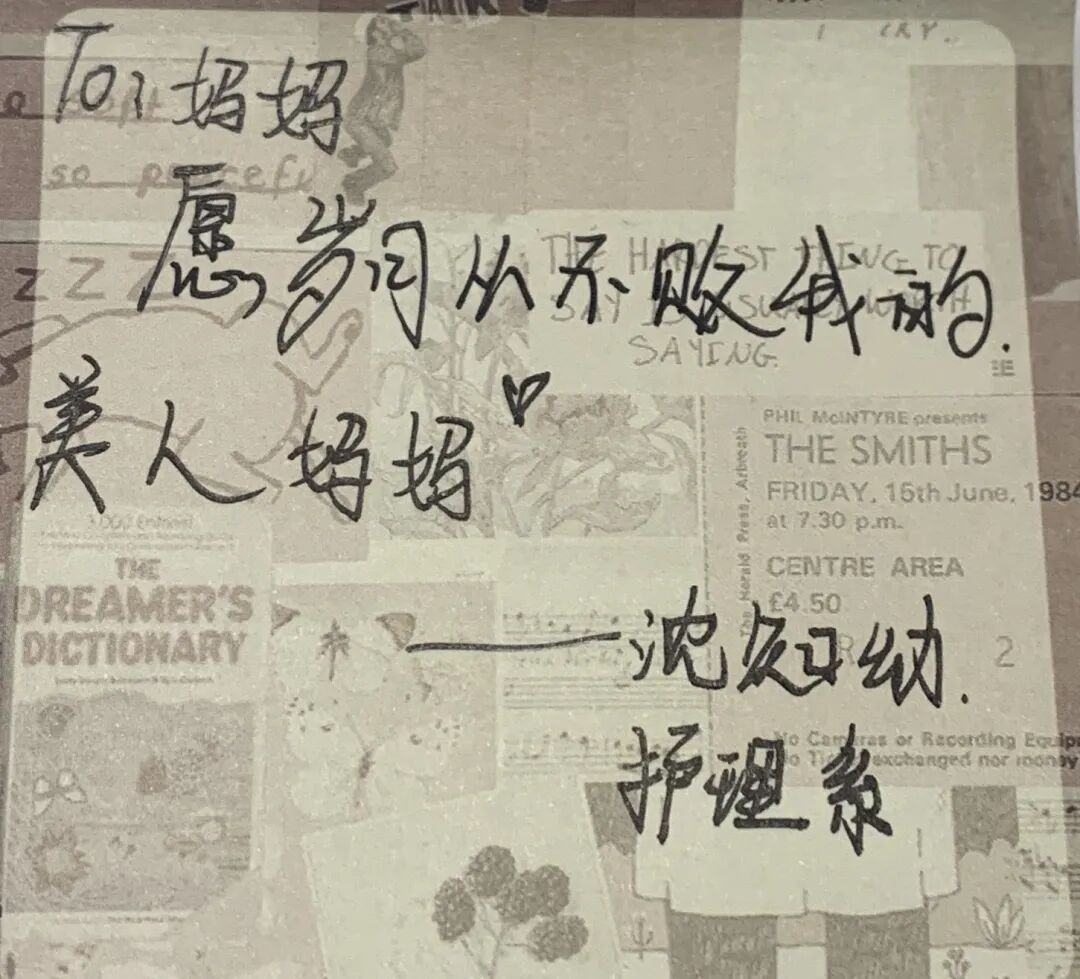 To: 妈妈
愿岁月从不败我的
美人妈妈
——沈知幼.
护理系
so
ZZZ
THE HARDEST THING TO
SAY
SAYING.
PHIL McINTYRE presents
THE SMITHS
FRIDAY, 15th June, 1984
at 7.30 p.m.
CENTRE AREA
£4.50
2
The Herald Press, Arbroath
No Cameras or Recording Equip
exchanged nor money
THE
DREAMER'S
DICTIONARY